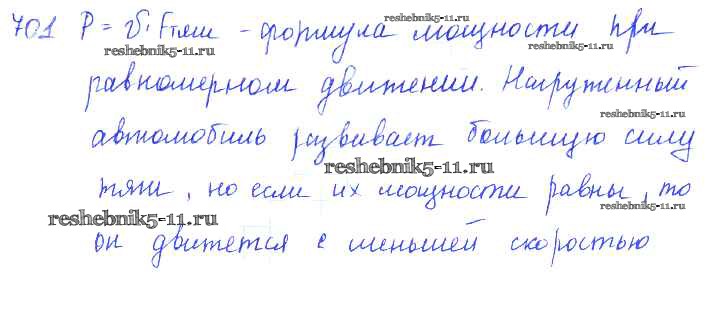 701 P = v · Fтяги - формула мощности при
равномерном движении. Нагруженный
автомобиль развивает большую силу
тяги, но если их мощности равны, то
он движется с меньшей скоростью
reshebnik5-11.ru
reshebnik5-11.ru
reshebnik5-11.ru
reshebnik5-11.ru
reshebnik5-11.ru
reshebnik5-11.ru
reshebnik5-11.ru
reshebnik5-11.ru
reshebnik5-11.ru